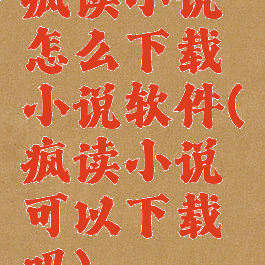 疯读小说
怎么下载
小说软件(
疯读小说
可以下载
吗)